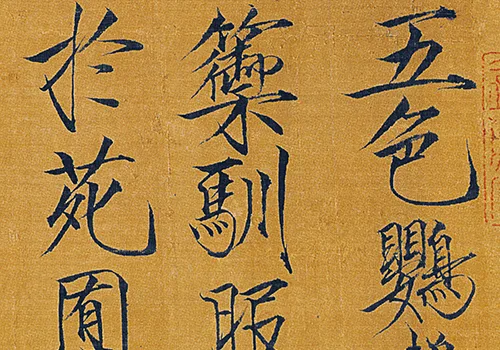 五色鸚
籞馴服
於苑囿